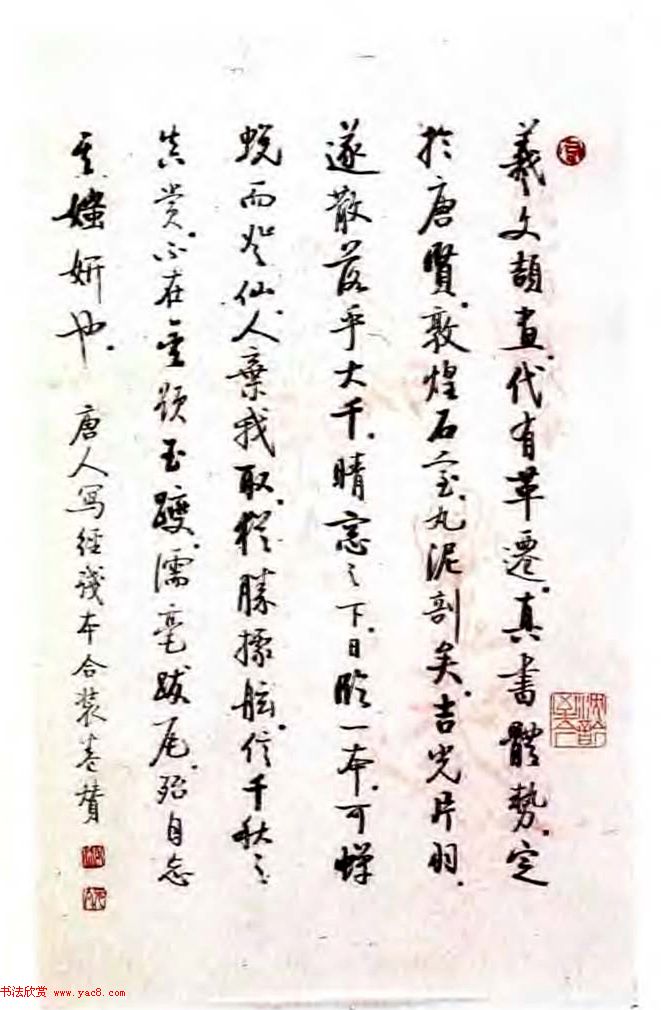 羲文頡畫代有革遷真書體勢定
於唐賢敦煌石室丸泥剖矣吉光片羽
遂散落乎大千晴窓之下日臨一本可蟬
蛻而登仙人棄我取猶勝據舷信千秋之
真賞不在金題玉躞濡毫跋尾殆自忘
其媸妍也
唐人寫經殘本合裝卷贊
书法欣赏 www.yac8.com